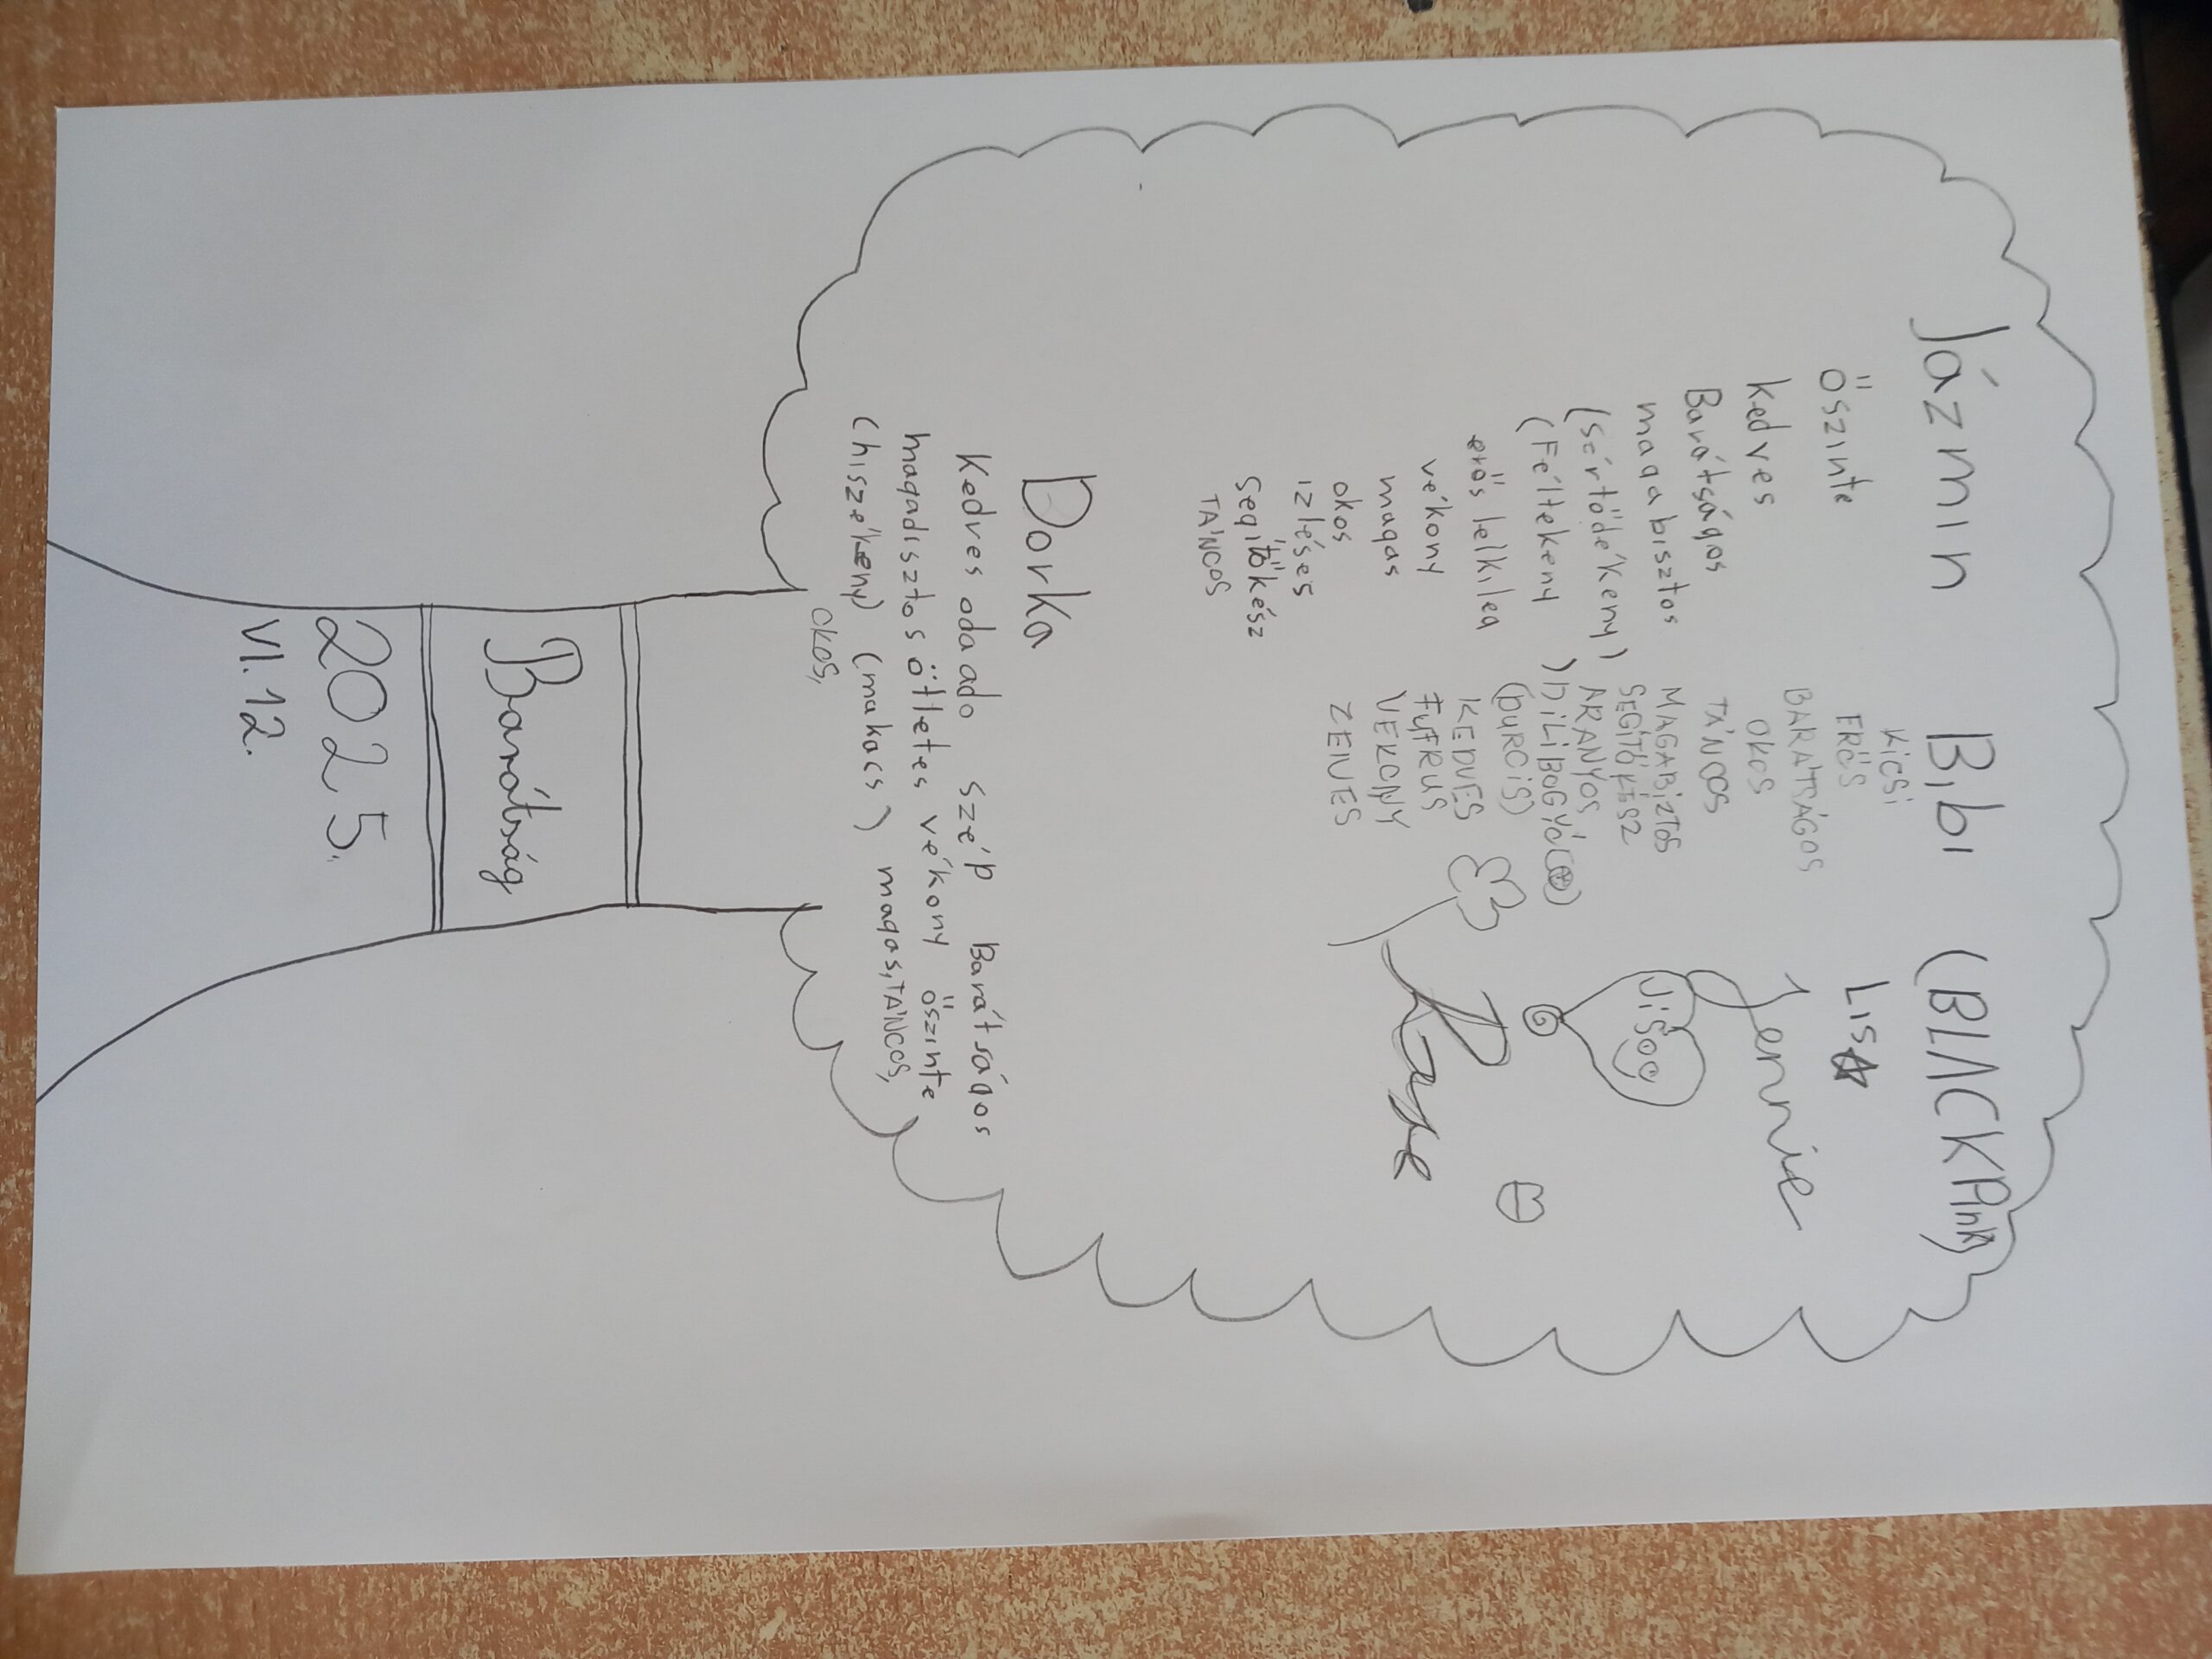 Jázmin
őszinte
kedves
Barátságos
magabisztos
(sértődékeny)
(Féltekeny)
erős lelkileg
vékony
magas
okos
izléses
segitőkész
TÁNCOS
Bibi
KiCSi
ERŐS
BARÁTSÁGOS
OKOS
TÁNCOS
MAGABiZTOS
SEGÍTŐKÉSZ
ARANYOS
DiLiBOGYÓ
(DURCiS)
KEDVES
FUFRUS
VEKONY
ZENES
(BLACKPink)
LISA
Jennie
JiSOO
Rose
Dorka
Kedves odaado szép Barátságos
magadisztos ötletes vékony őszinte
(hiszékeny) (makacs) magas, TÁNCOS,
OKOS,
Barátság
2025.
VI. 12.